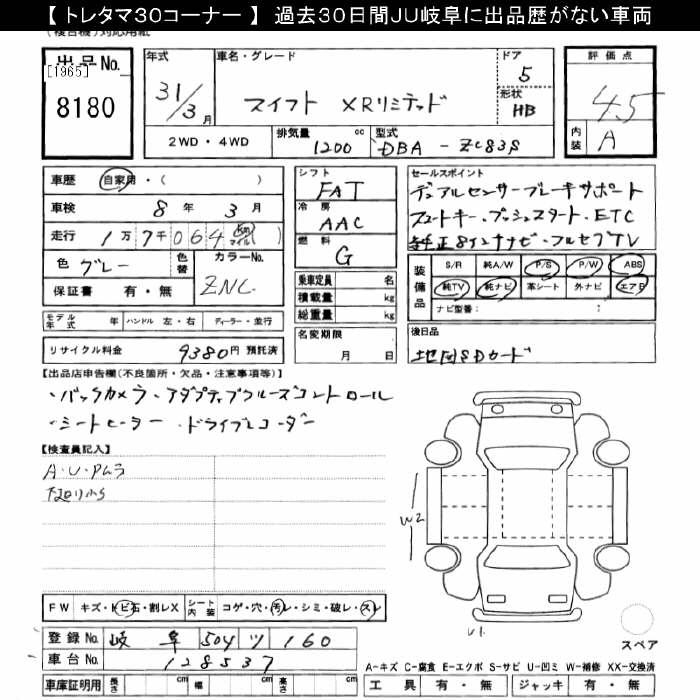 【 トレタマ３０コーナー 】 過去３０日間ＪＵ岐阜に出品歴がない車両
出品No.
[1965]
8180
年式
31/3 月
車名・グレード
スイフト XRリミテッド
ドア
5
形状
HB
評価点
4.5
内装
A
2WD・4WD
排気量
1200 cc
型式
DBA - ZC83S
車歴 自家用・( )
車検 8年 3月
走行 1万7千064 Km マイル ( )
色 グレー 色替 カラーNo. ZNC
保証書 有・無
シフト
FAT
冷房
AAC
燃料
G
乗車定員 名
積載量 kg
総重量 kg
名変期限
月 日
セールスポイント
デュアルセンサーブレーキサポート
スマートキー・プッシュスタート・ETC
純正8インチナビ・フルセグTV
装備品
S/R 純A/W P/S P/W ABS
純TV 純ナビ 革シート 外ナビ エアB
ナビ型番： ：
モデル年式 年 ハンドル 左・右 ディーラー・並行
リサイクル料金 9380円 預託済
後日品
地図SDカード
【出品店申告欄(不良箇所・欠品・注意事項等)】
・バックカメラ・アダプティブクルーズコントロール
・シートヒーター・ドライブレコーダー
【検査員記入】
A・U・Pムラ
W2
U1
FW キズ・トビ石・割レX シート内装 コゲ・穴・汚レ・シミ・破レ・スレ
スペア
登録No. 岐阜 504 ツ 160
車台No. 128537
A−キズ C−腐食 E−エクボ S−サビ U−凹ミ W−補修 XX−交換済
車庫証明用 長さ cm 幅 cm 高さ cm
工具 有・無 ジャッキ 有・無